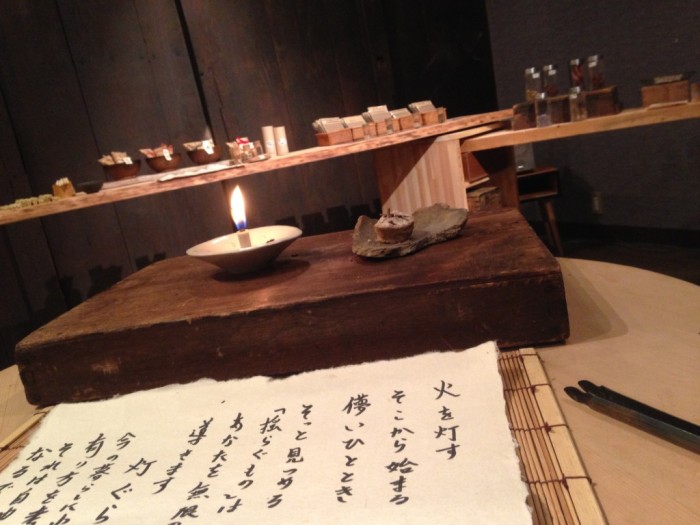 火を灯す
そこから始まる
儚いひととき
そっと見つめる
「揺らぐもの」は
あなたを無限の
導きます
灯ぐら
今の暮らしに
有り方に
それは
なるで